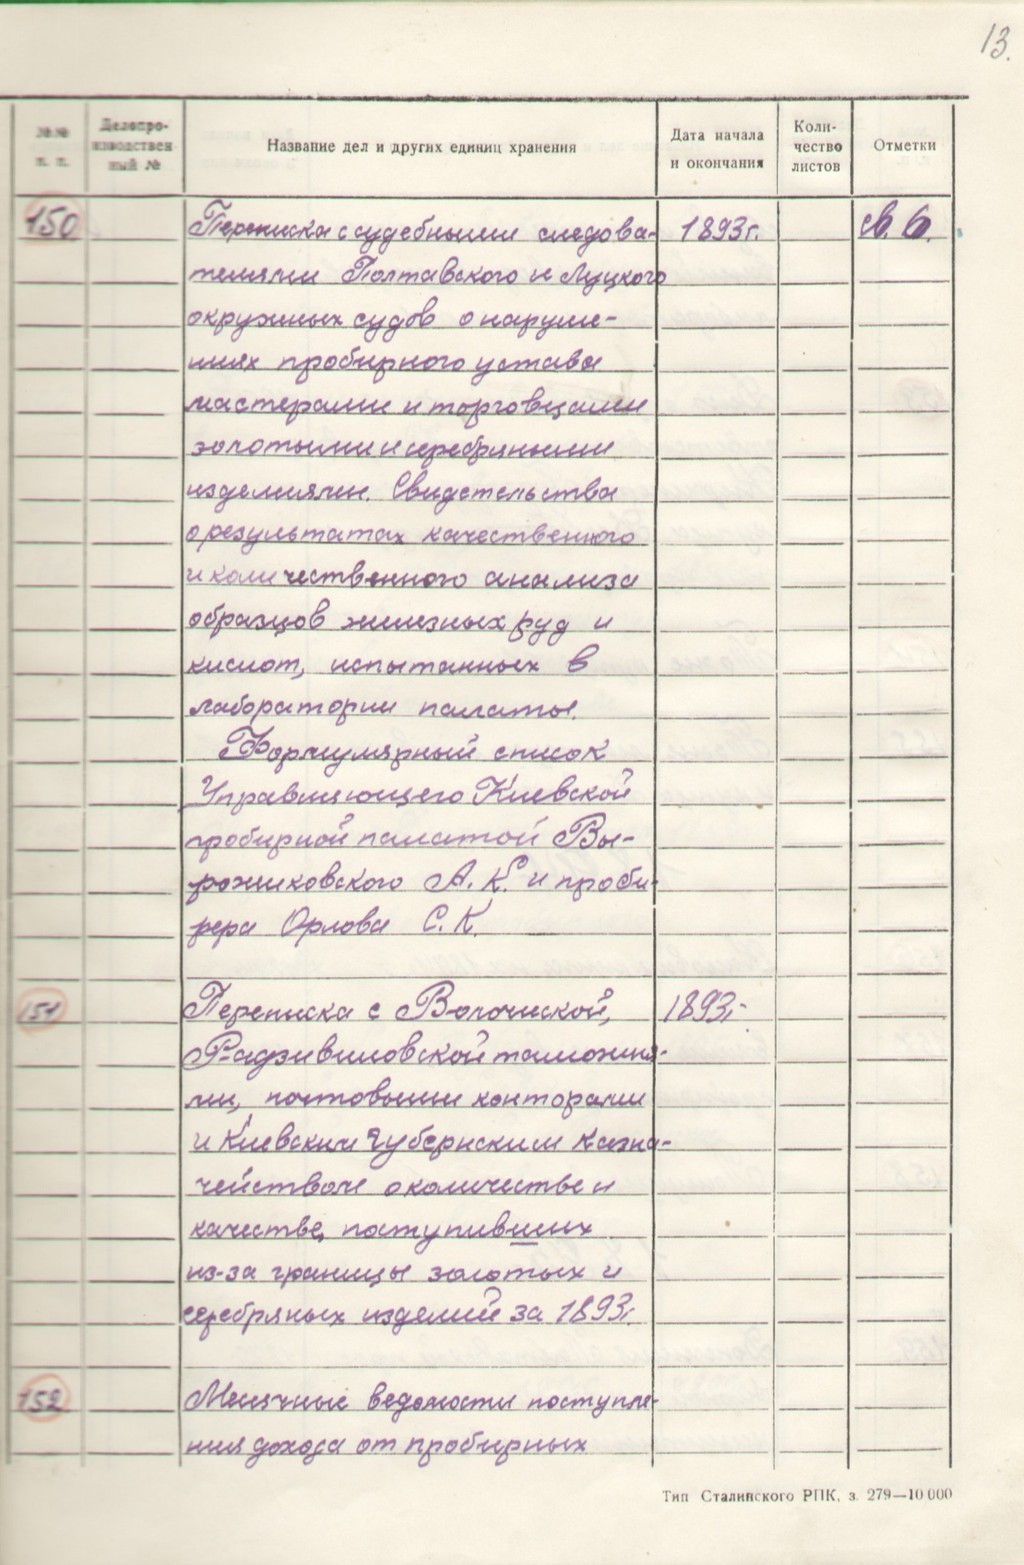 13.
№№ п. п.
Делопро-
изводствен
ный №
Название дел и других единиц хранения
Дата начала
и окончания
Коли-
чество
листов
Отметки
150 Переписка с судебными следова- 1893г. св. 6.
телями Полтавского и Луцкого
окружных судов о наруше-
ниях пробирного устава
мастерами и торговцами
золотыми и серебряными
изделиями. Свидетельства
о результатах качественного
и количественного анализа
образцов железных руд и
кислот, испытанных в
лаборатории палаты.
Формулярный список
Управляющего Киевской
пробирной палатой Вы-
рожиковского А. К. и проби-
рера Орлова С. К.
151 Переписка с Волочиской, 1893г
Радзивиловской таможня-
ми, почтовыми конторами
и Киевским Губернским Казна-
чейством о количестве и
качестве, поступивших
из-за границы золотых и
серебряных изделий за 1893г.
152 Месячные ведомости поступле-
ния дохода от пробирных
Тип Сталинского РПК, з. 279—10 000